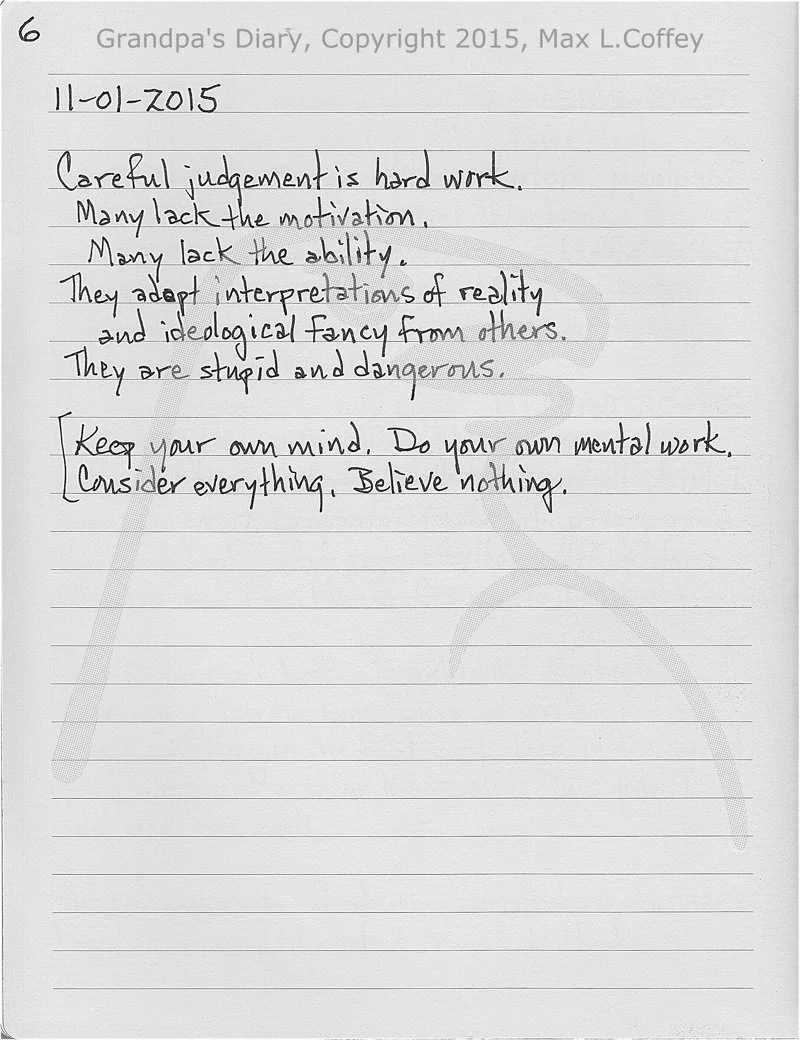 6
Grandpa's Diary, Copyright 2015, Max L.Coffey
11-01-2015
Careful judgement is hard work.
Many lack the motivation.
Many lack the ability.
They adopt interpretations of reality
and ideological fancy from others.
They are stupid and dangerous.
Keep your own mind. Do your own mental work.
Consider everything. Believe nothing.